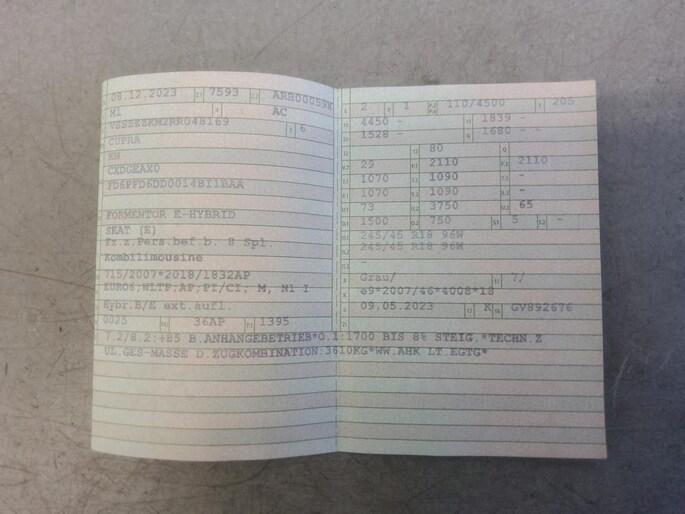 08.12.2023 7593 ARH00059
M1 AC
VSSZZZKMZRR048169 6
CUPRA
KM
CXDGEAX0
FD6PFD6DD0014BI1BAA
FORMENTOR E-HYBRID
SEAT (E)
Fz.z.Pers.bef.b. 8 Spl.
Kombilimousine
715/2007*2018/1832AP
EURO6;WLTP;AP;PI/CI; M, N1 I
Hybr.B/E ext.aufl.
0025 36AP 1395
2 1 110/4500 205
4450 - 1839 -
1528 - 1680 - -
80
29 2110 2110
1070 1090 -
1070 1090 -
73 3750 65
1500 750 5 -
245/45 R18 96W
245/45 R18 96W
-
Grau/ 7/
e9*2007/46*4008*18
09.05.2023 K GV892676
7.2/8.2:+85 B.ANHANGEBETRIEB*O.1:1700 BIS 8% STEIG.*TECHN.Z
UL.GES-MASSE D.ZUGKOMBINATION:3610KG*WW.AHK LT.EGTG*